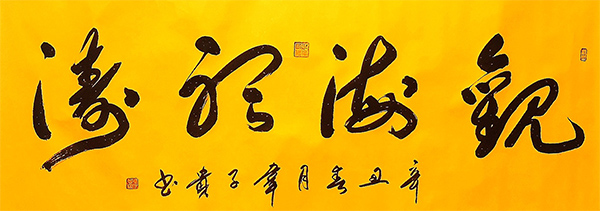 觀海聽濤
辛丑春月韋子貴书